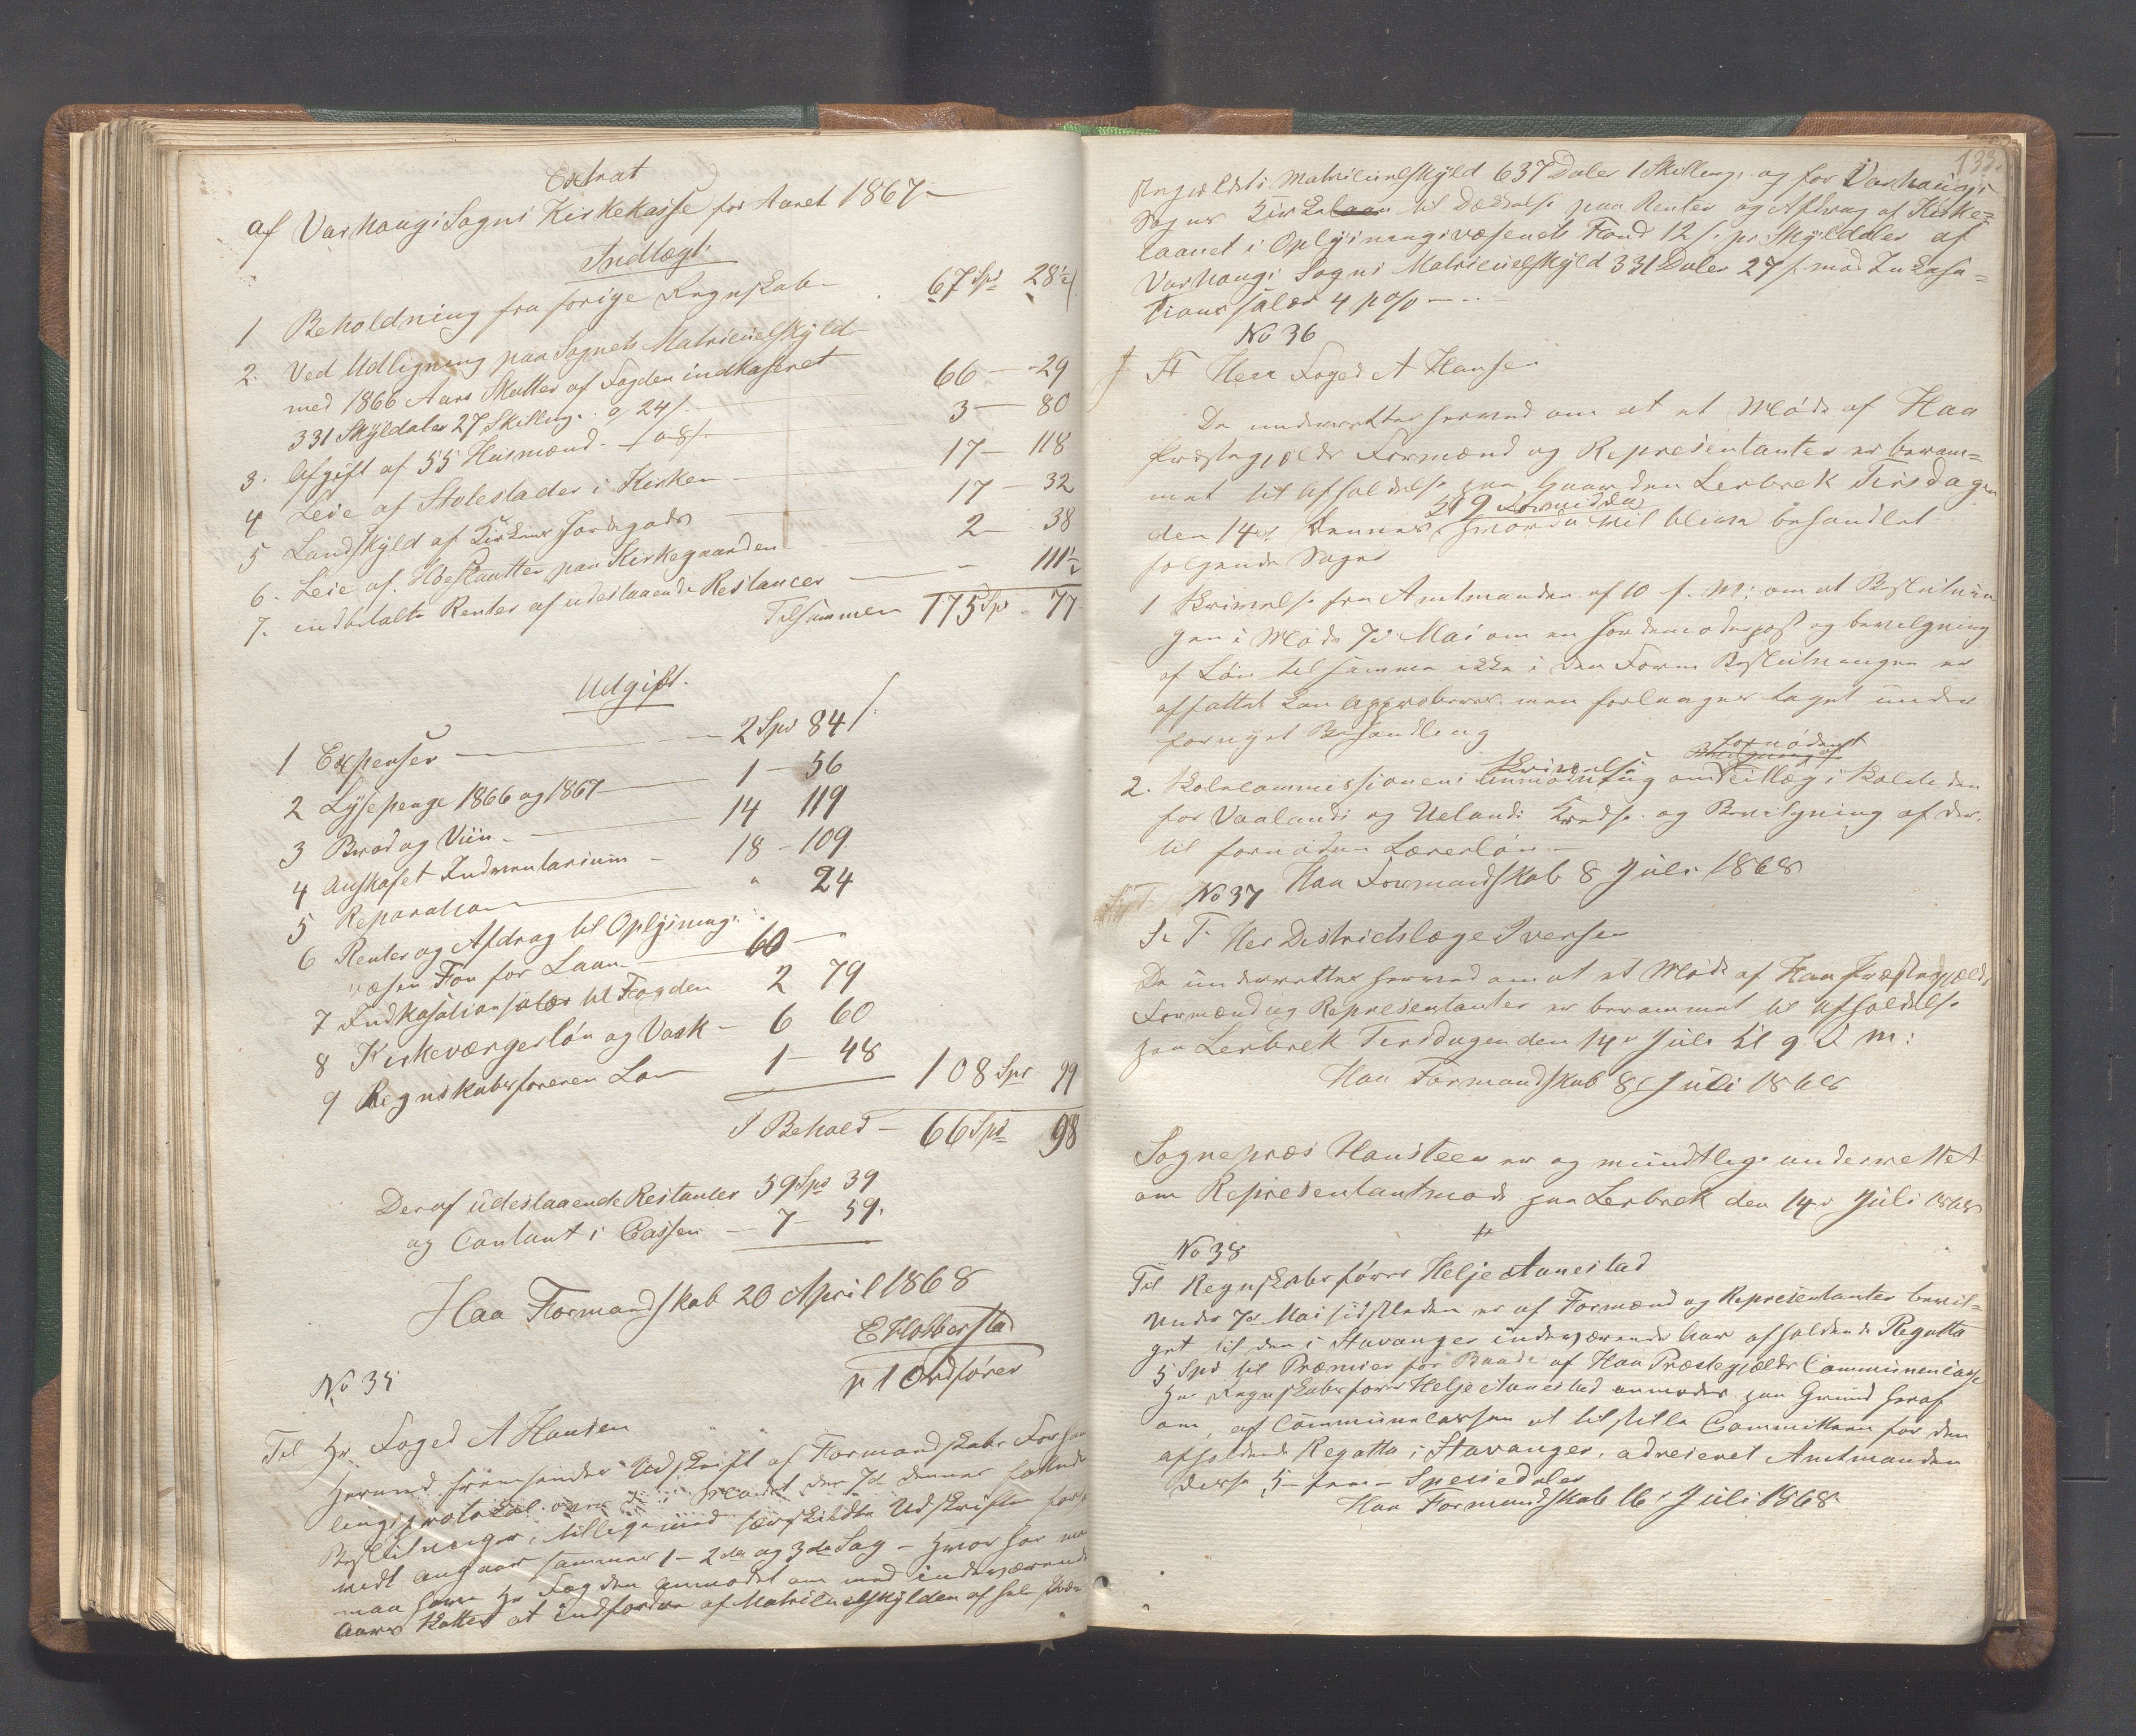 Extrat
af Varhaugs Sogns Kirkekasse for Aaret 1867
Indtægt
1 Beholdning fra forige Regnskab 67 Spd 28½
2. Ved Udligning paa Sognets Matricuelskyld
med 1866 Aars Skatter af Fogden indkaseret
331 Skyldaler 27 Skilling. a 24 s. 66 - 29
3. Afgift af 55 Husmænd. a 8 s. 3 - 80
4 Leie af Stolestader i Kirken 17 - 118
5 Landskyld af Kirkens Jordegods 17 - 32
6. Leie af. Hæstautter paa Kirkegaarden 2 - 38
7. indbetalte Renter af udestaaende Restancer - 111½
Tilsammen 175 Spd 77
Udgift.
1 Expenser 2 Spd 84 s.
2 Lysepenge 1866 og 1867 1 - 56
3 Brød og Viin 14 119
4 Anskafet Indventarium 18 - 109
5 Reparation " 24
6 Renter og Afdrag til Oplysnings
væsen Fon for Laan 60 - "
7 Indkasationsalær til Fogden 2 79
8 Kirkeværgerløn og Vask 6 60
9 Regnskabsføreren Løn 1 - 48 108 Spd 99
I Behold - 66 Spd 98
Deraf udestaaende Restanter 59 Spd 39
og Contant i Cassen - 7 - 59.
Haa Formandskab 20 April 1868
E Hobberstad
p t Ordfører
No 35
Til Hr Foged A Hansen
Herved fremsendes Udskrift af Formandskabs Forhand
lingsprotokol over de i Mødet den 7de dennes fattede
Beslutninger, tilligemed særskildte Udskrifter forsaa
vidt angaar sammes 1 - 2den og 3die Sag - hvorhos man
maa have Hr Fogden anmodet om med indeværende
Aars Skatter at indfordre af Matricuelskylden af hele Præste
133.
stegjeldets Matricuelskyld 637 Daler 1 Skilling, og for Varhaugs
Sogns Kirke til Dækkelse paa Renter og Afdrag af Kirke=
laanet i Oplysningsvæsenets Fond 12 s. pr Skyldaler af
Varhaugs Sogns Matricuelskyld 331 Daler 27 s. mod Inkasa=
tionssalær 4 pC
No 36
S T Herr Foged A Hansen
De underrettes herved om at et Møde af Haa
Præstegjælds Formænd og Representanter er beram=
met til Afholdelse paa Gaarden Lerbrek Tirsdagen
den 14de dennes Kl 9 Formiddag hvorda vil blive behandlet
følgende Sager
1 Skrivelse fra Amtmanden af 10 f. M: om at Beslutnin
gen i Møde 7de Mai om en Jordemoderpost og bevilgning
af Løn til samme ikke i den Form Beslutningen er
affattet kan approberes. men forlanges taget under
fornyet Behandling
2. Skolecommissionens Skrivelse om fornødent Tillæg i Skoletiden
for Vaalands og Uelands Kredse. og Bevilgning af der
til fornøden Lærerløn -
Haa Formandskab 8 Juli 1868
No 37
S. T. Her Districtslæge Iversen
De underrettes herved om at et Møde af Haa Præstegjælds
Formænd og Representanter er berammet til afholdelse
paa Lerbrek Tirsdagen den 14de Juli Kl 9 F M:
Haa Formandskab 8de Juli 1868
Sognepræs Hansteen er og mundtlige underrettet
om Representantmøde paa Lerbrek den 14de Juli 1868
No 38
Til Regnskabsfører Helje Aanestad
Under 7de Mai sidstleden er af Formænd og Representanter bevil=
get til den i Stavanger indeværende Aar afholdende Regatta
5 Spd til Præmier for Baade af Haa Præstegjælds Communecasse
Hr Regnskabsfører Helje Aanestad anmodes paa Grund heraf
om, af Communecassen at tilstille Committeen for den
afholdende Regatta i Stavanger, adreseret Amtmanden
disse 5 - fem - Speciedaler
Haa Formandskab 16de Juli 1868